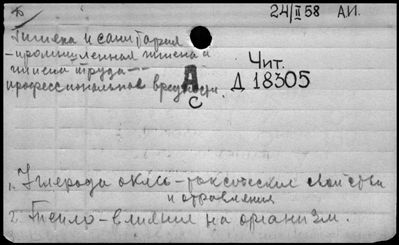 24/II 58 А.И.
Гигиена и санитария
-промышленная гигиена и
гигиена труда-
профессиональные вредности.
Чит.
Д 18305
А
С
1. Углерода окись - токсические свойства
и отравления
2. Тепло - влияния на организм.